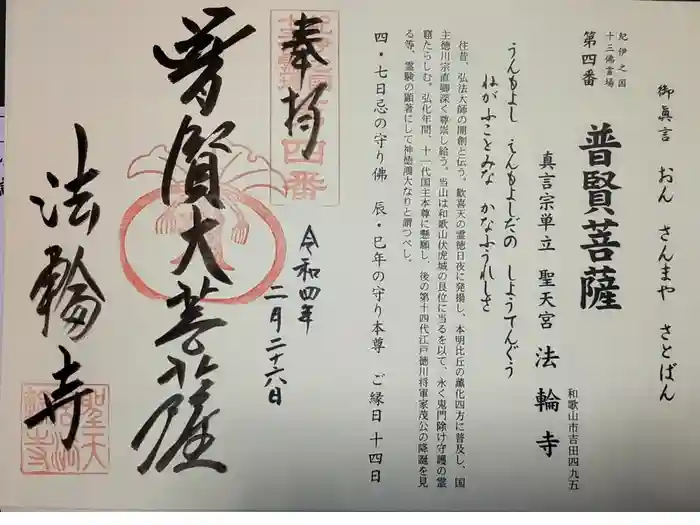 御眞言　おん　さんまや　さとばん
紀伊之国
十三佛霊場
第四番
普賢菩薩
和歌山市吉田四九五
真言宗単立　聖天宮　法輪寺
うんもよし　えんもよしだの　しようてんぐう
ねがふことみな　かなふうれしさ
往昔、弘法大師の開創と伝う。歓喜天の霊徳日夜に発揚し、本明比丘の薫化四方に普及し、国
主徳川宗直卿深く尊崇し給う。当山は和歌山伏虎城の艮位に当るを以て、永く鬼門除け守護の霊
窟たらしむ。弘化年間、十一代国主本尊に懸願し、後の第十四代江戸徳川将軍家茂公の降誕を見
る等、霊験の顕著にして神徳鴻大なりと謂つべし。
四・七日忌の守り佛　辰・巳年の守り本尊　ご縁日十四日
奉拝
四番
令和四年
二月二十六日
普賢大菩薩
法輪寺
聖天